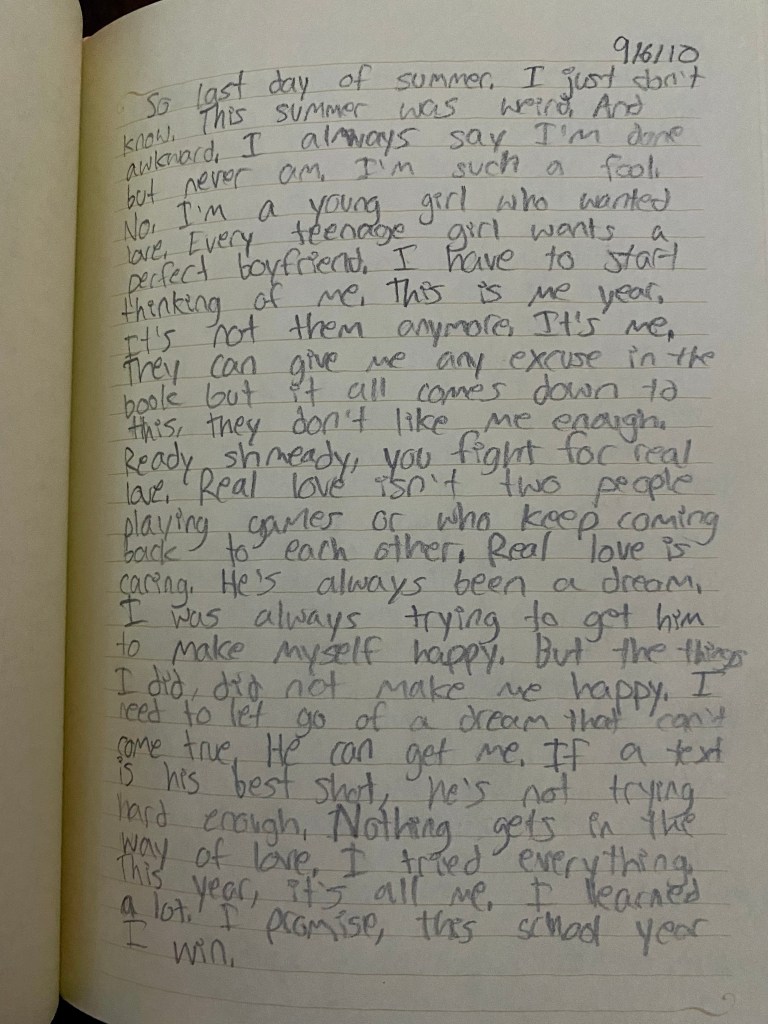 9/6/10
So last day of summer. I just don't
know. This summer was weird. And
awkward. I always say I'm done
but never am. I'm such a fool.
No, I'm a young girl who wanted
love. Every teenage girl wants a
perfect boyfriend. I have to start
thinking of me. This is me year.
It's not them anymore. It's me.
They can give me any excuse in the
book but it all comes down to
this, they don't like me enough.
Ready shmeady, you fight for real
love. Real love isn't two people
playing games or who keep coming
back to each other. Real love is
caring. He's always been a dream.
I was always trying to get him
to make myself happy. But the things
I did, did not make me happy. I
need to let go of a dream that can't
come true. He can get me. If a text
is his best shot, he's not trying
hard enough. Nothing gets in the
way of love. I tried everything.
This year, it's all me. I learned
a lot. I promise, this school year
I win.